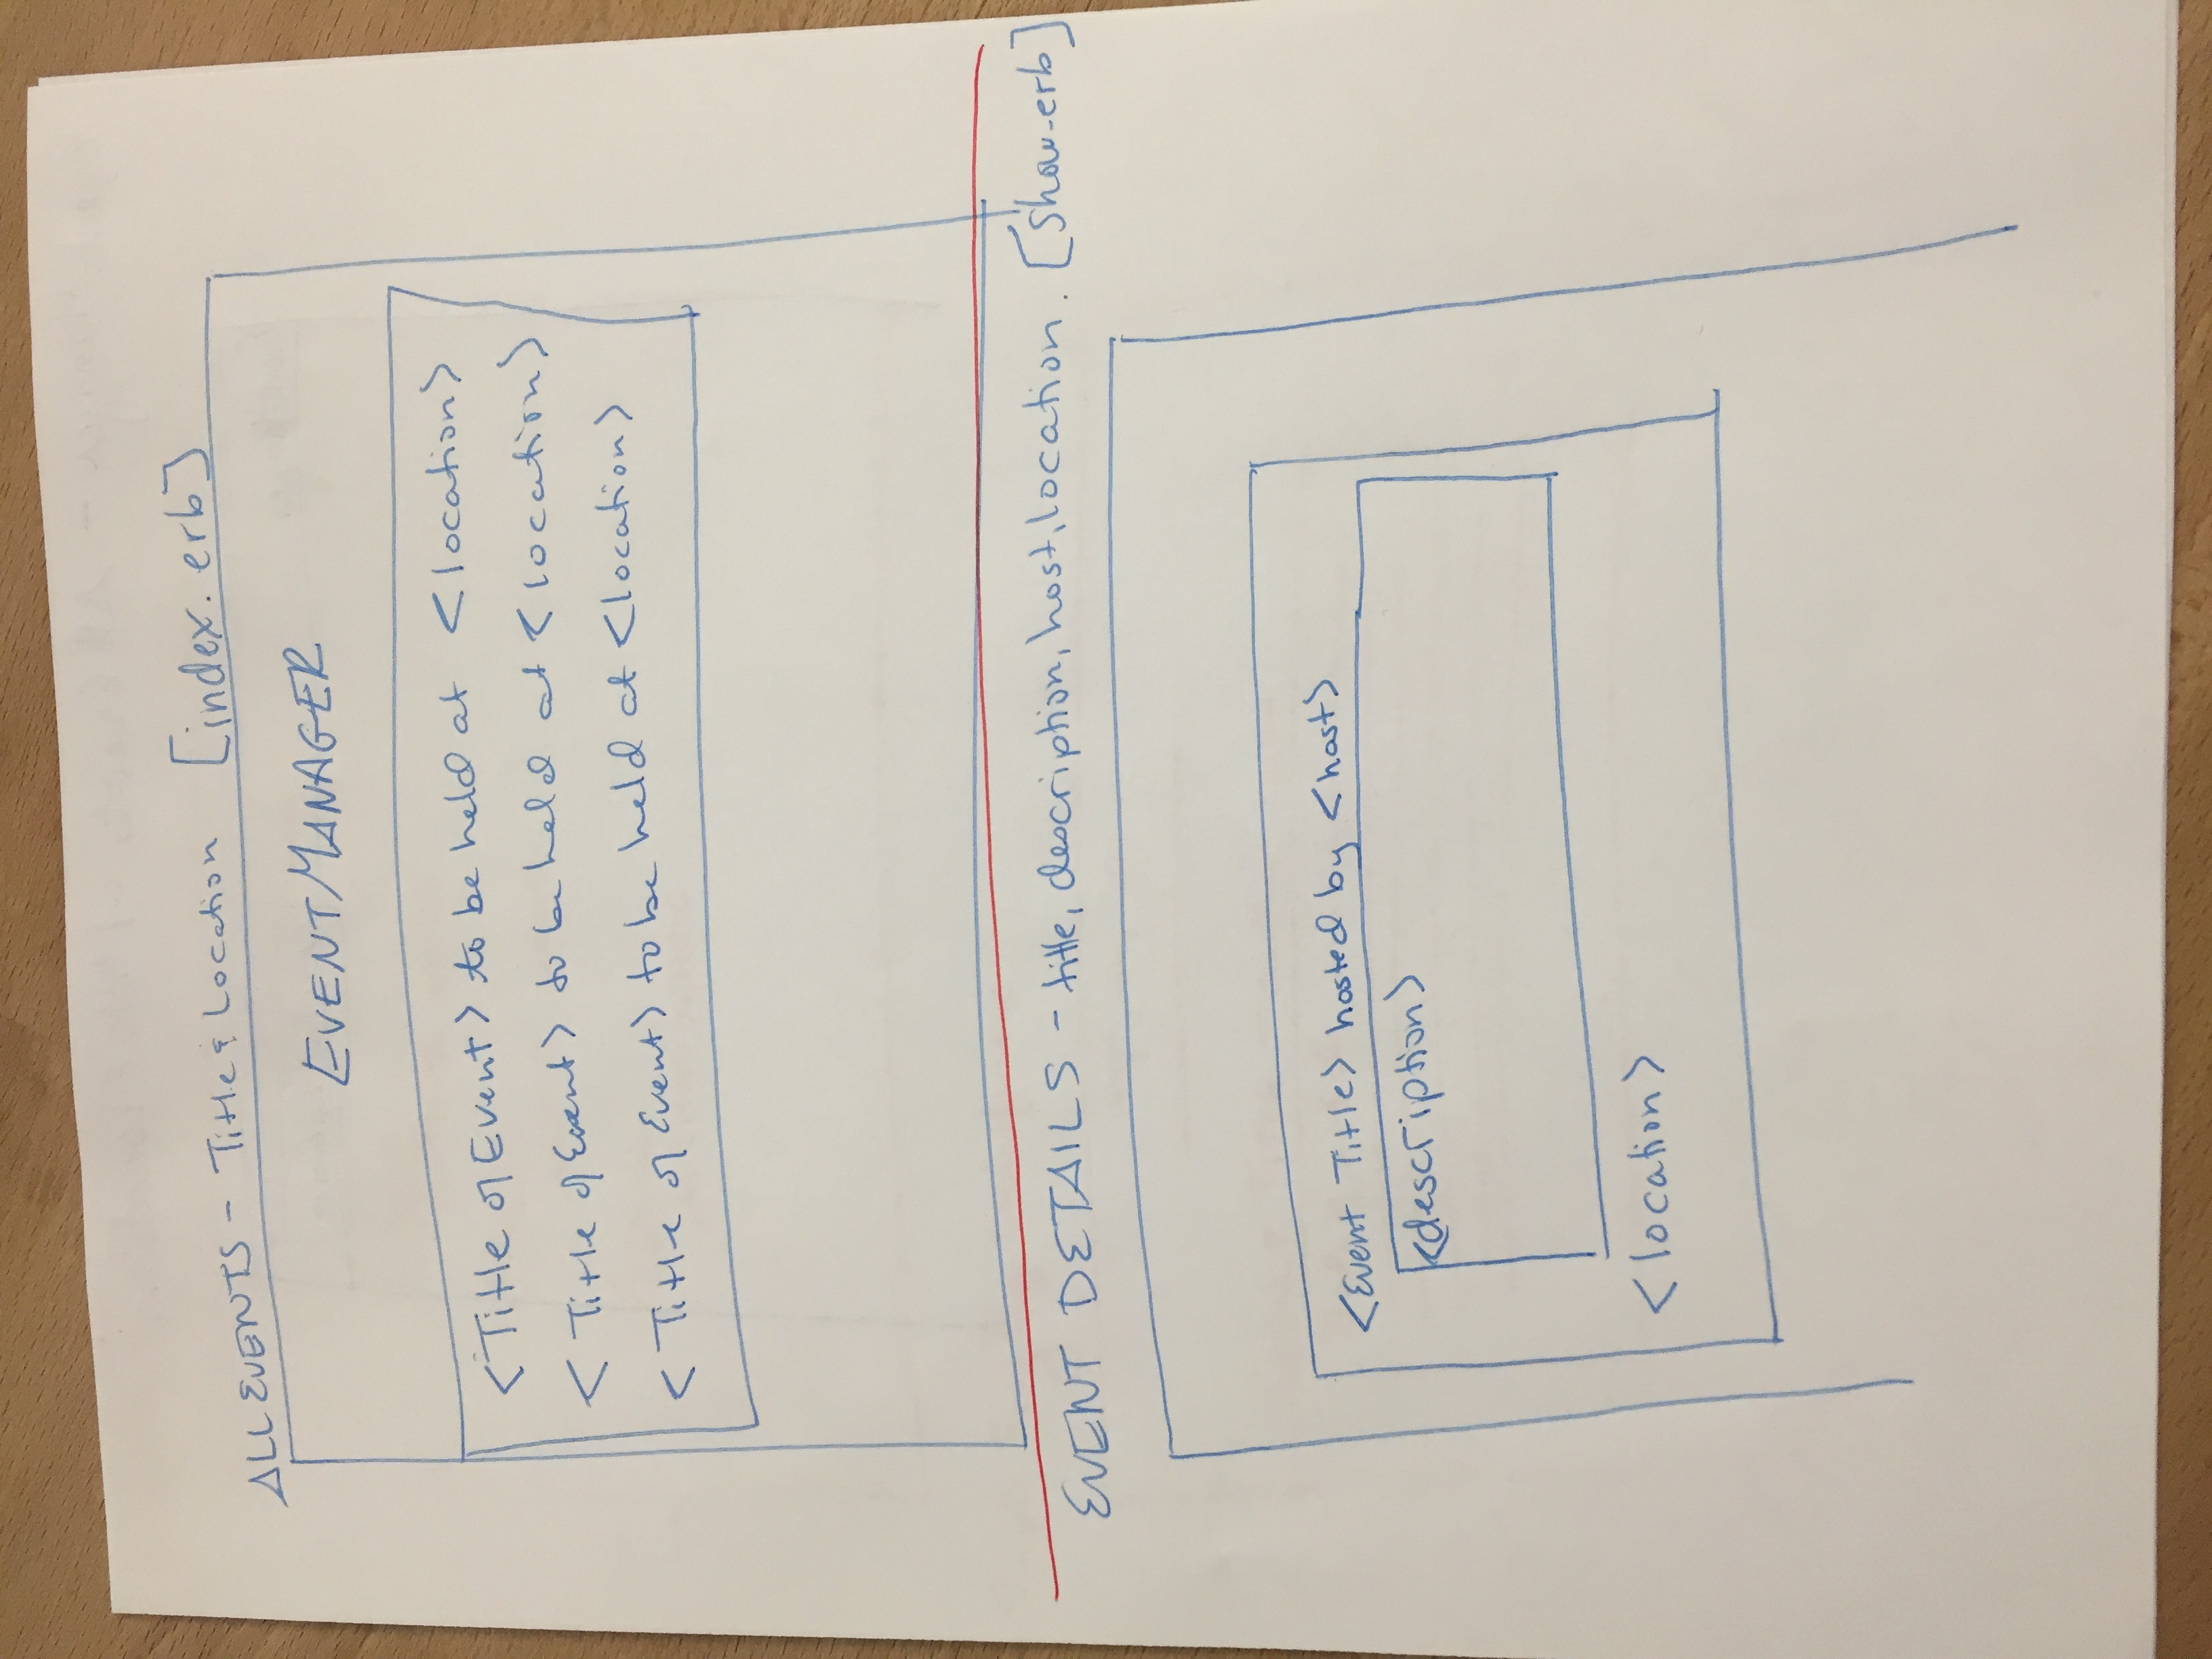 ALL EVENTS - Title & Location [index.erb]
EVENT MANAGER
<Title of Event> to be held at <location>
<Title of Event> to be held at <location>
<Title of Event> to be held at <location>
EVENT DETAILS - title, description, host, location. [show.erb]
<Event Title> hosted by <host>
<description>
<location>